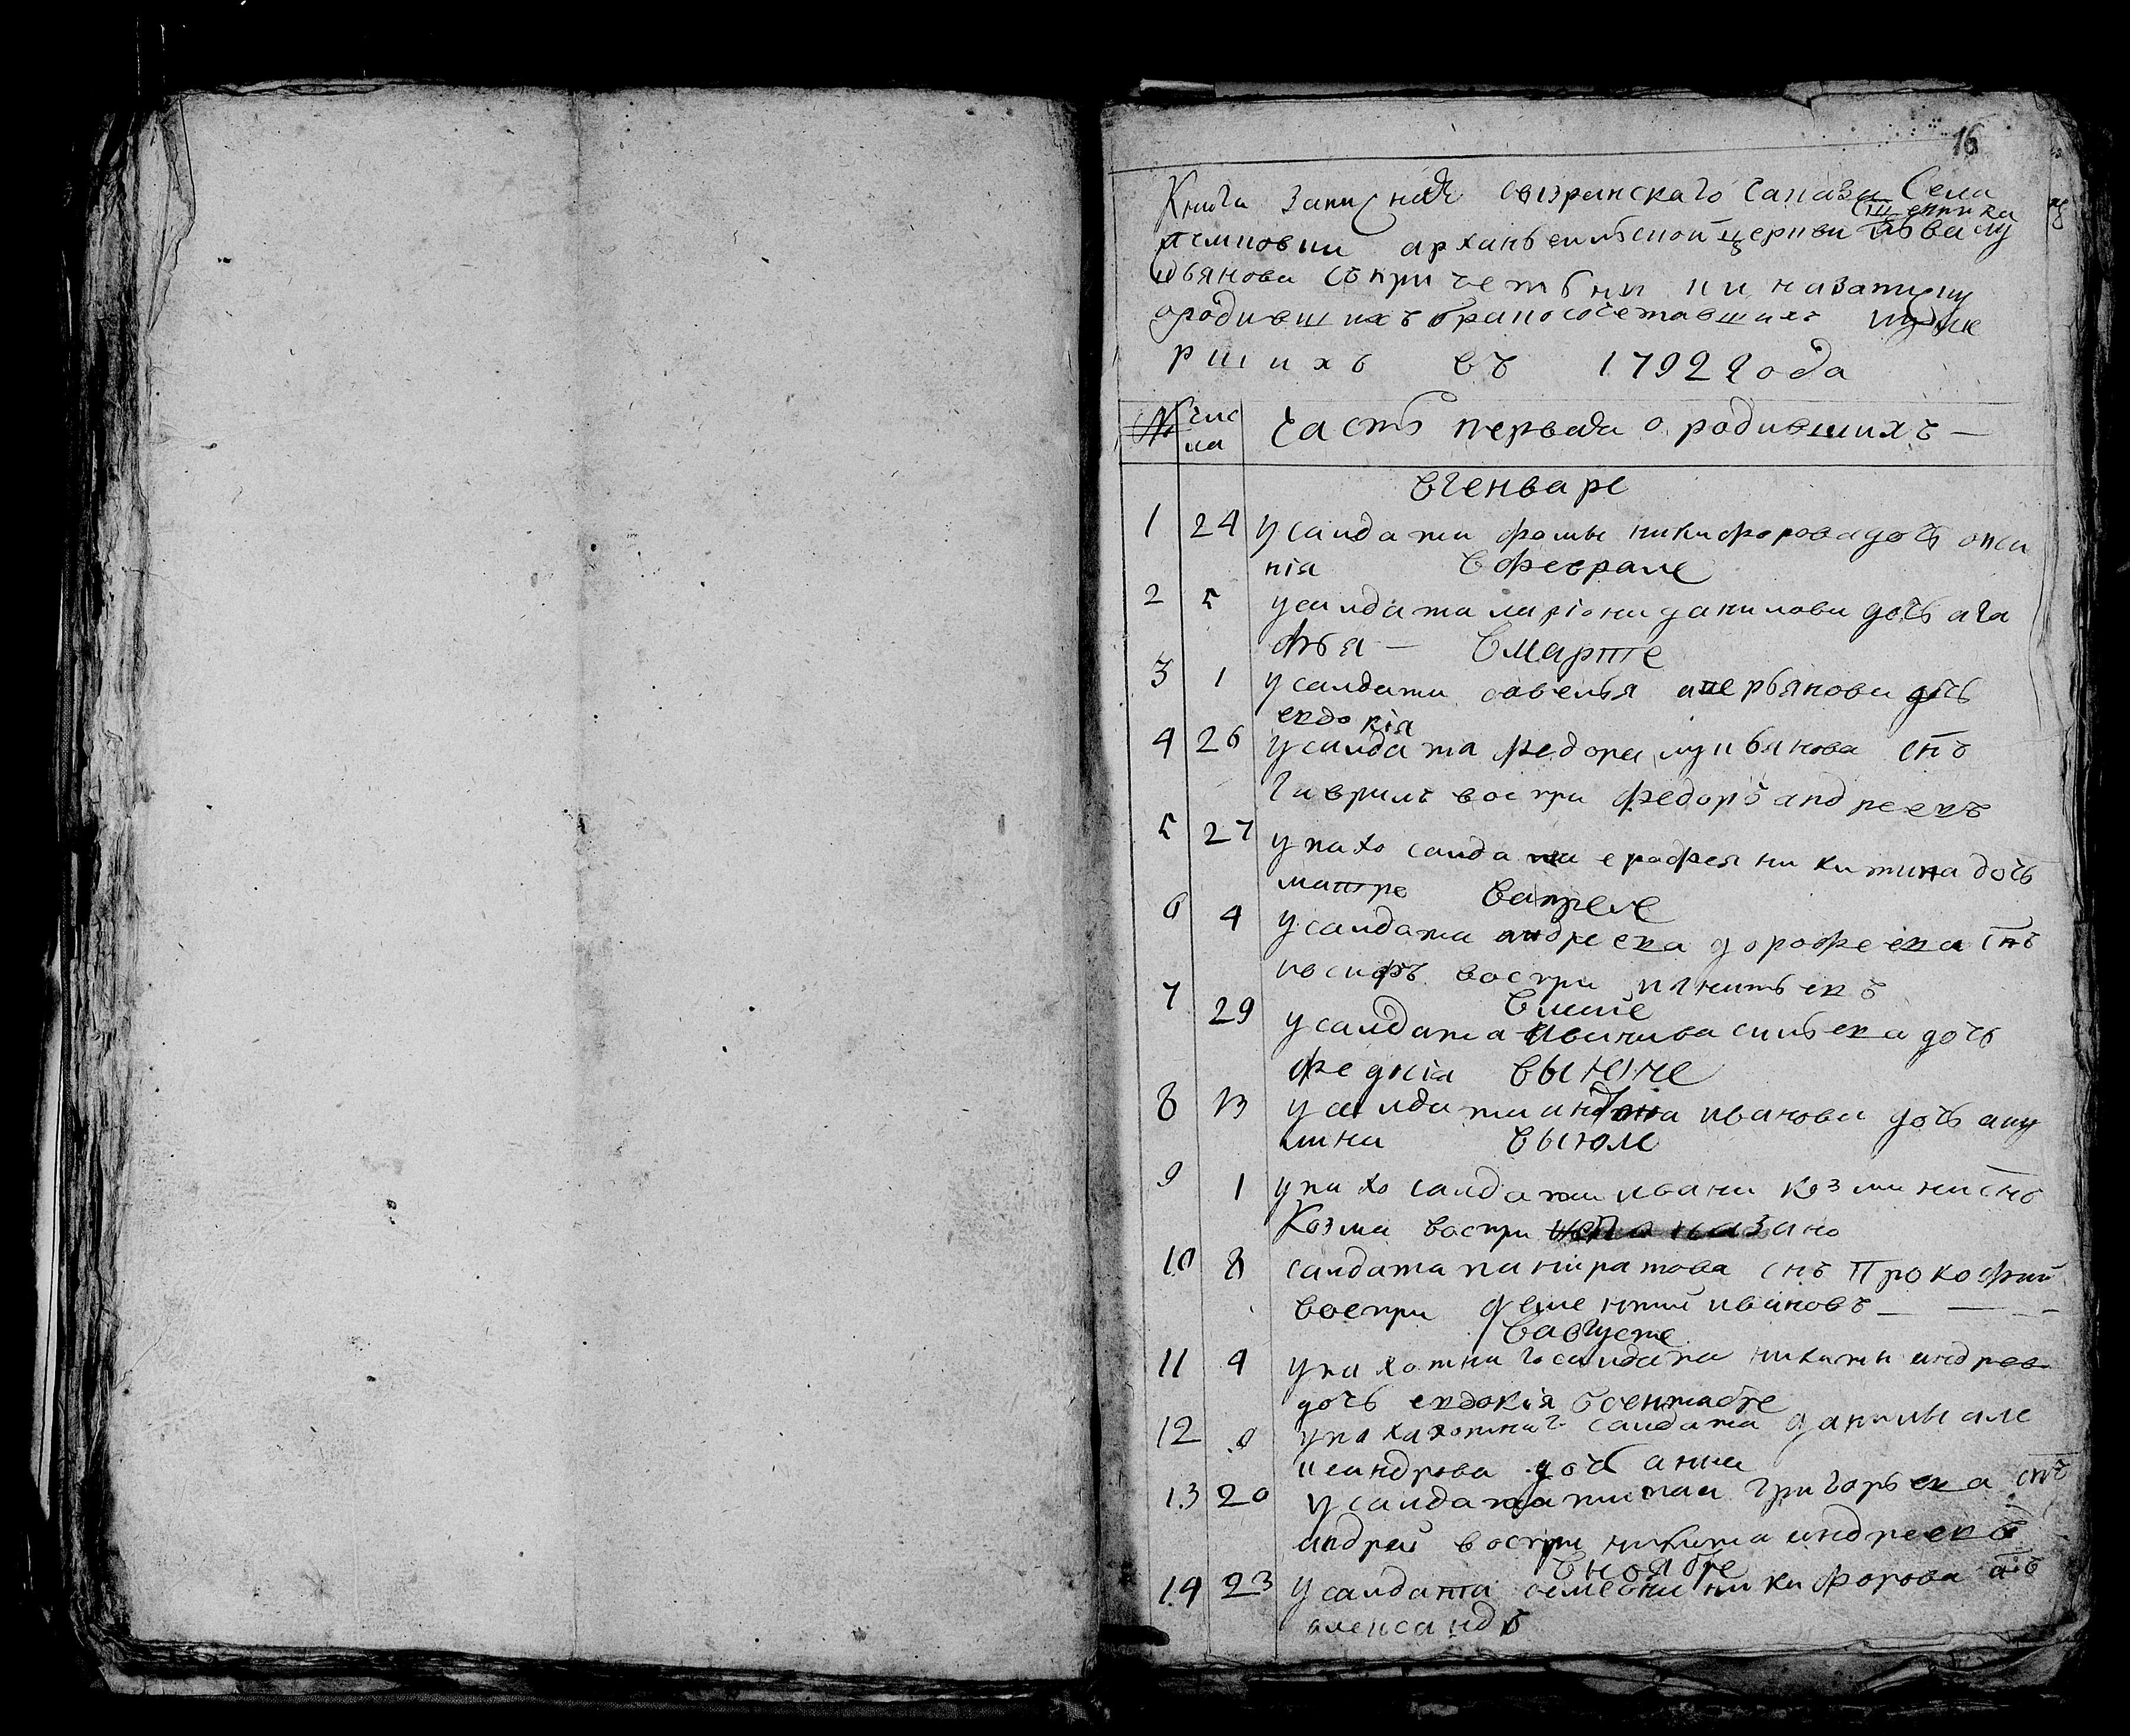 16
Книга записная сызранскаго Села
сщенника
архангельской церкви Ивана лу
кьянова съ причетники на записку
ородившихъ бракосочетавшихъ иуме
ршихъ въ 1792 года
№ числа Часть первая о родившихъ —
вгенваре
1 24 у салдата фомы никифорова дочь окси
нiя вфеврале
2 5 усалдата ларiона данилова дочь ага
фья — вмарте
3 1 усалдата савелья аверьянова дочь
евдокiя
4 26 усалдата федора лукьянова снъ
гаврилъ воспри федоръ андреевъ
5 27 упахо салда та ерофея никитина дочь
матре вапреле
6 4 усалдата андреева дорофеева снъ
иосифъ воспри игнатьевъ
вмаие
7 29 усалдата ивана васильева дочь
федосiя выюне
8 13 усалдата антона иванова дочь аку
лина выюле
9 1 упахо салдата ивана козмина снъ
Козма воспри непоказано
10 8 салдата панкратова снъ Прокофий
воспри дементий ивановъ — — —
вавгусте
11 4 упахотнаго салдата никиты андреев
дочь евдокiя всентябре
12 упахахотнаг салдата данилы але
ксандрова дочь анна
13 20 усалдата григорьева снъ
андрей воспри никита андреевъ
вноябре
14 23 усалдата семена никифорова снъ
александръ